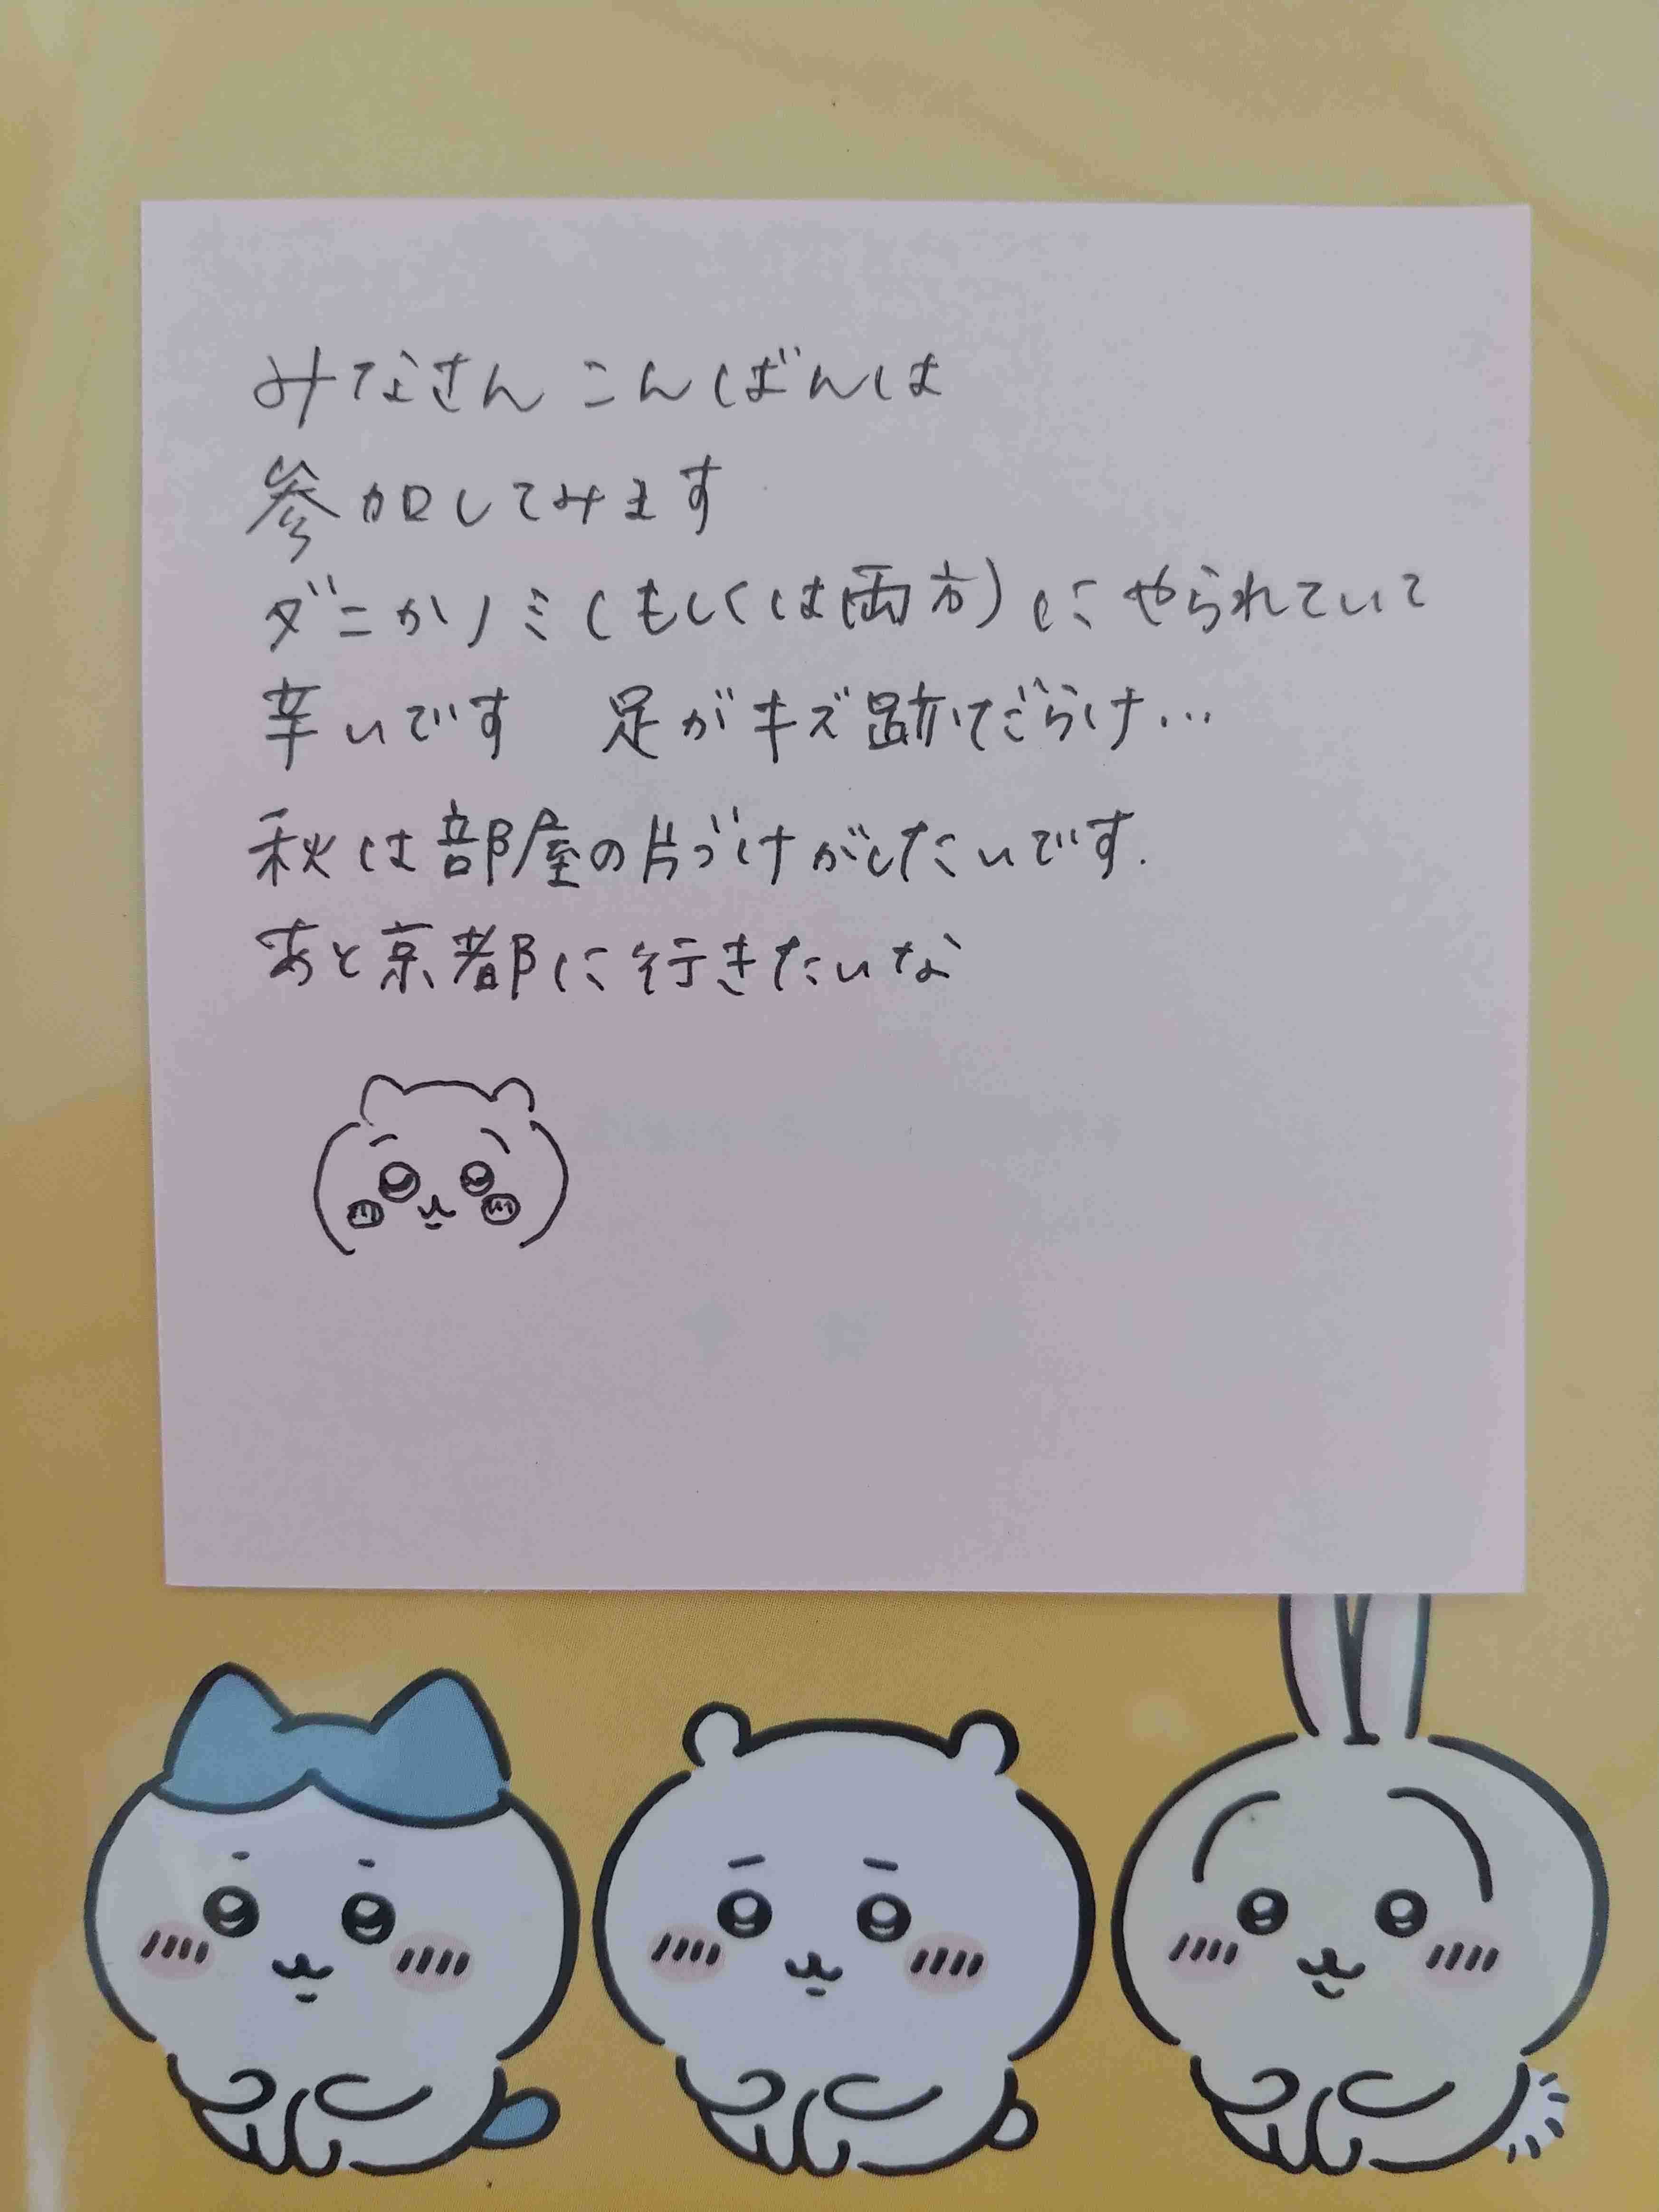 みなさん こんばんは
参加してみます
ダニかノミ(もしくは両方)にやられていて
辛いです 足がキズ跡だらけ…
秋は部屋の片づけがしたいです.
あと京都に行きたいな